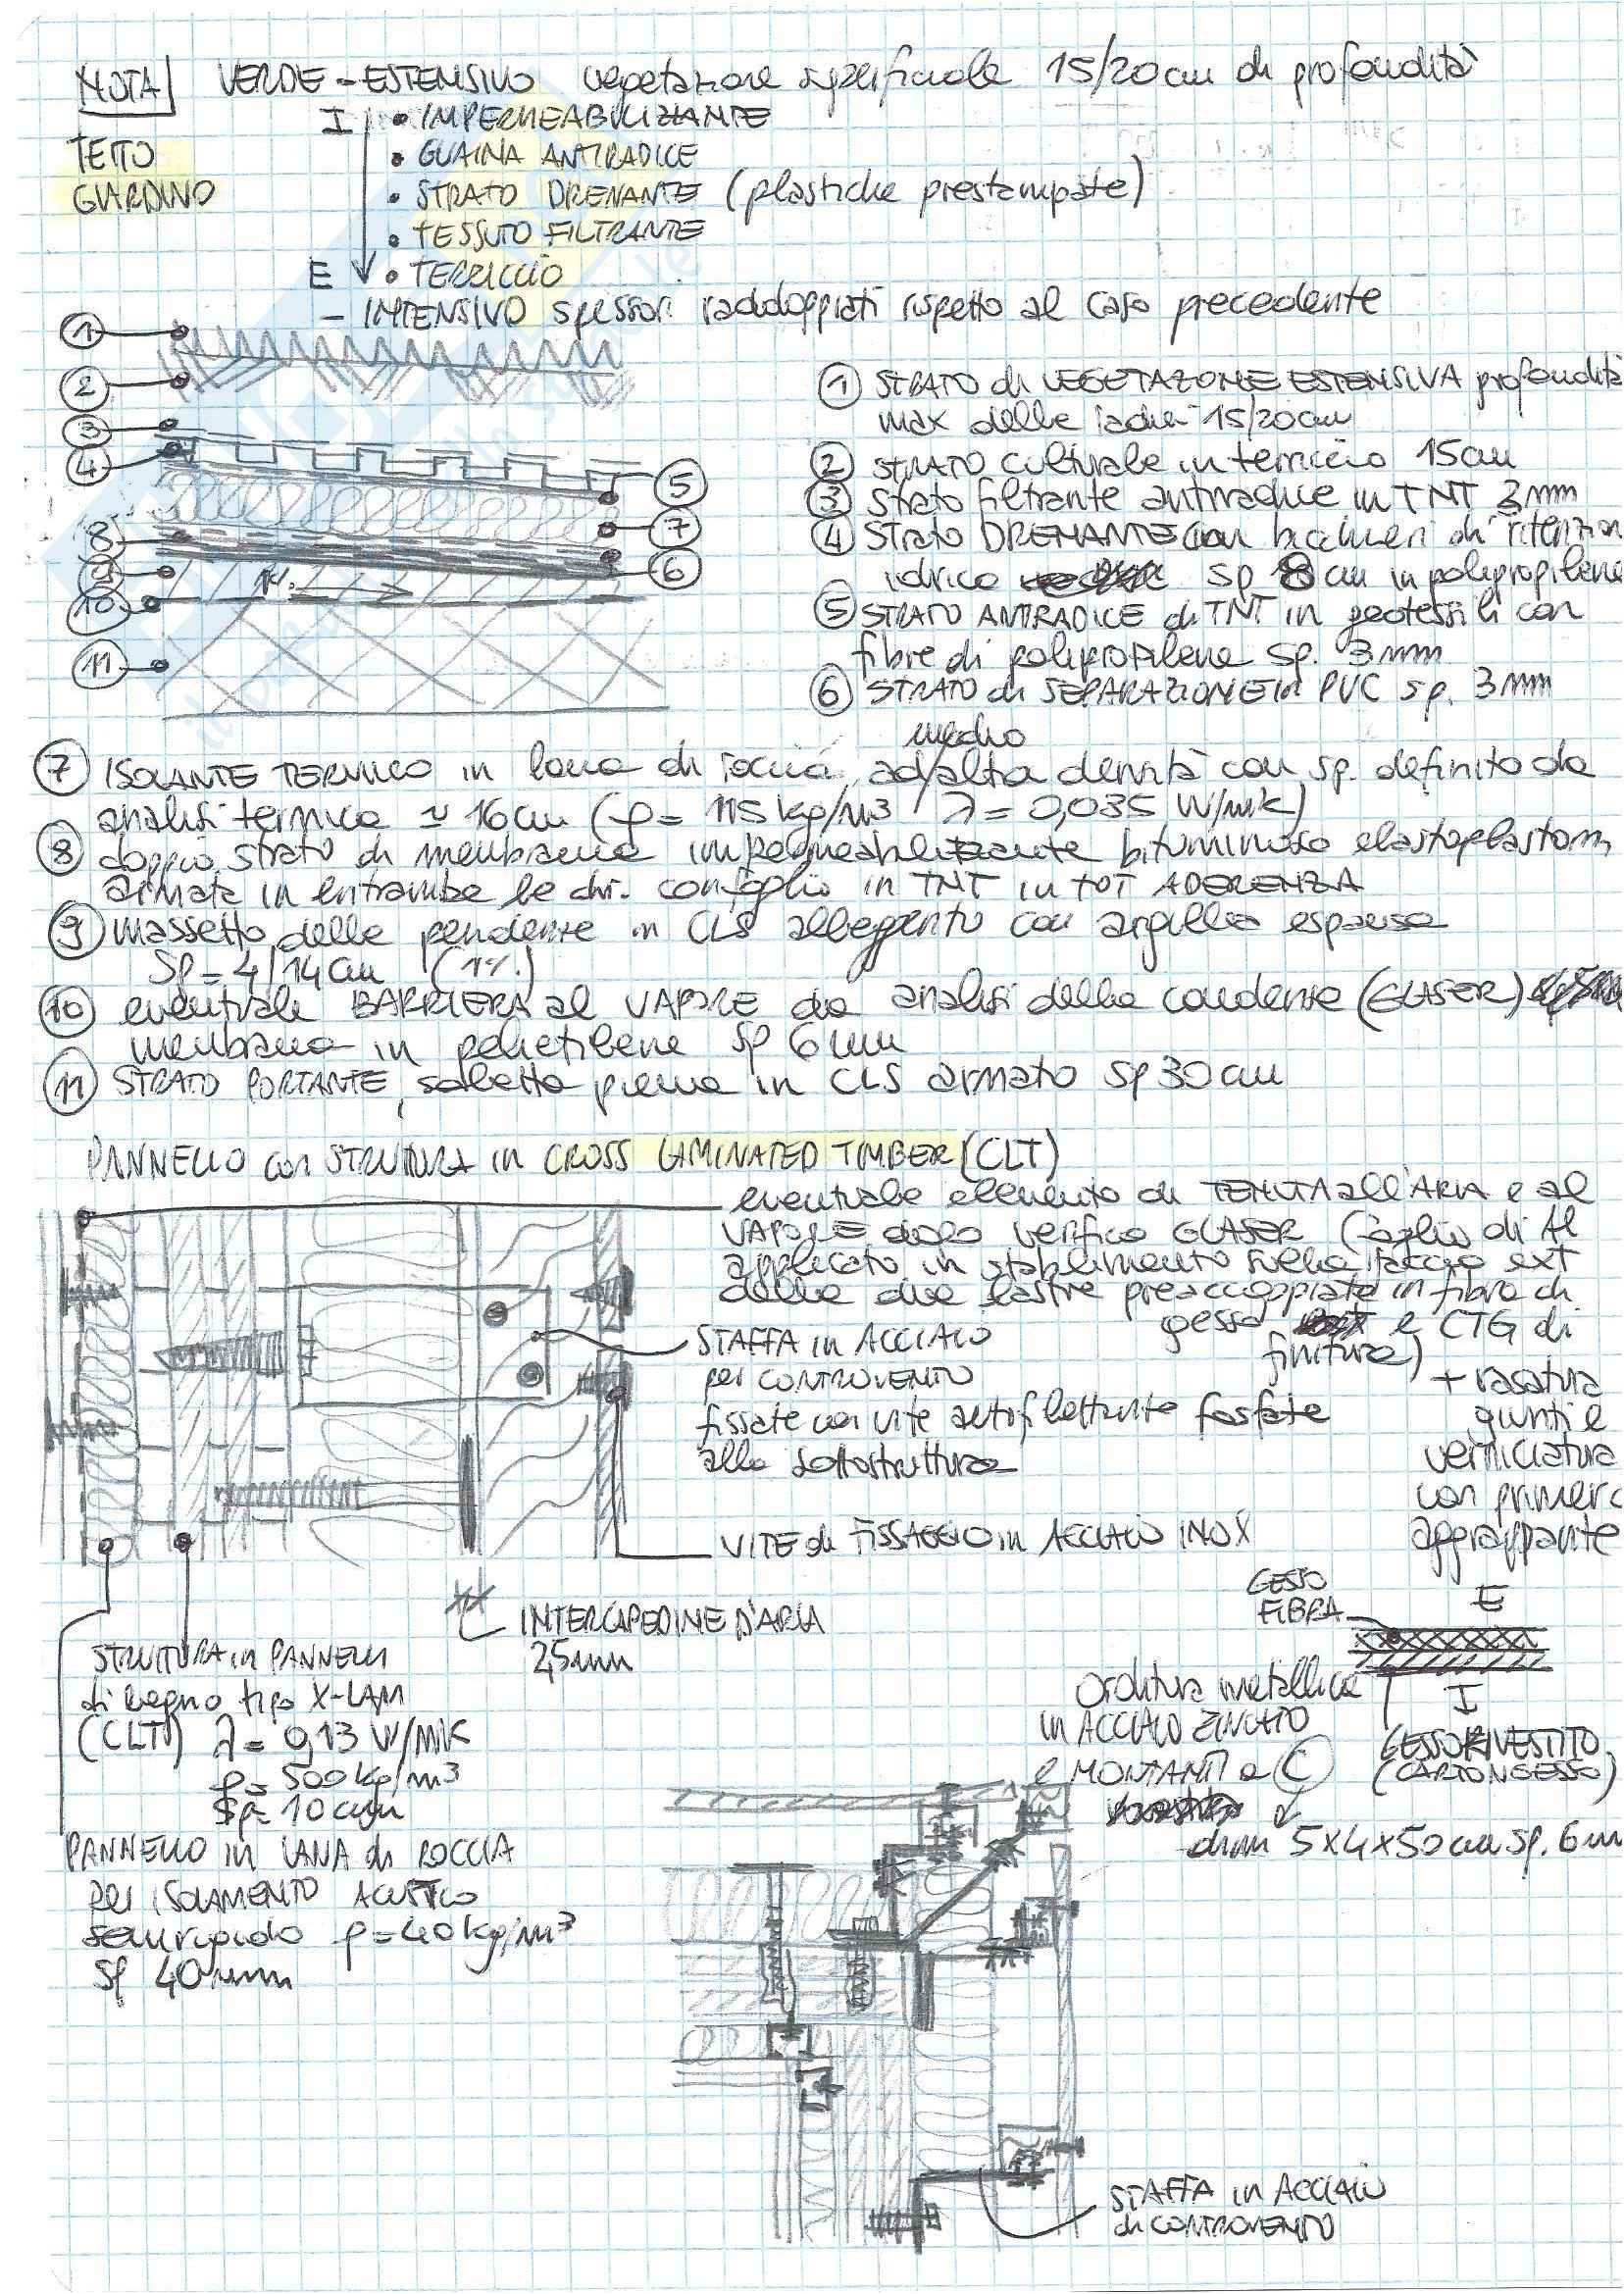 NOTA VERDE - ESTENSIVO vegetazione superficiale 15/20cm di profondità
TETTO GIARDINO
I • IMPERMEABILIZZANTE
• GUAINA ANTIRADICE
• STRATO DRENANTE (plastiche prestampate)
• TESSUTO FILTRANTE
E • TERRICCIO
- INTENSIVO spessori raddoppiati rispetto al caso precedente
1
2
3
4
5
7
8
6
9
1%
10
11
1 STRATO di VEGETAZIONE ESTENSIVA profondità
max delle radici 15/20cm
2 STRATO colturale in terriccio 15cm
3 Strato filtrante antiradice in TNT 3mm
4 Strato DRENANTE con bicchieri di ritenzion
idrica sp 8 cm in polipropilene
5 STRATO ANTIRADICE di TNT in geotessili con
fibre di polipropilene sp. 3mm
6 STRATO di SEPARAZIONE in PVC sp. 3mm
medio
7 ISOLANTE TERMICO in lana di roccia ad/alta densità con sp. definito da
analisi termica ≃ 16cm (ρ= 115 kg/m3 λ = 0,035 W/mk)
8 doppio strato di membrana impermeabilizzante bituminoso elastoplastom
armate in entrambe le dir. con foglio in TNT in TOT ADERENZA
9 massetto delle pendenze in CLS alleggerito con argilla espansa
Sp = 4/14cm (1%)
10 eventuale BARRIERA al VAPORE da analisi della condensa (GLASER)
membrana in polietilene sp 6mm
11 STRATO PORTANTE, soletta piena in CLS armato sp 30cm
PANNELLO con STRUTTURA in CROSS LAMINATED TIMBER (CLT)
eventuale elemento di TENUTA all'ARIA e al
VAPORE dopo verifica GLASER (foglio di Al
applicato in stabilimento sulla faccia ext
delle due lastre preaccoppiate in fibra di
gesso e CTG di
finitura)
+ rasatura
giunti e
verniciatura
con primer
aggrappante
STAFFA in ACCIAIO
per CONTROVENTO
fissate con vite autofilettante fosfate
alla sottostruttura
VITE di FISSAGGIO in ACCIAIO INOX
INTERCAPEDINE D'ARIA
25mm
STRUTTURA in PANNELLI
di legno tipo X-LAM
(CLT) λ = 0,13 W/mK
ρ= 500kg/m3
Sp= 10cm
PANNELLO in LANA di ROCCIA
per ISOLAMENTO ACUSTICO
semirigido ρ=40kg/m3
Sp 40mm
GESSO
FIBRA
E
I
GESSO RIVESTITO
(CARTONGESSO)
Orditura metallica
in ACCIAIO ZINCATO
e MONTANTI a C
dim 5x4x50cm sp. 6m
STAFFA in ACCIAIO
di CONTROVENTO